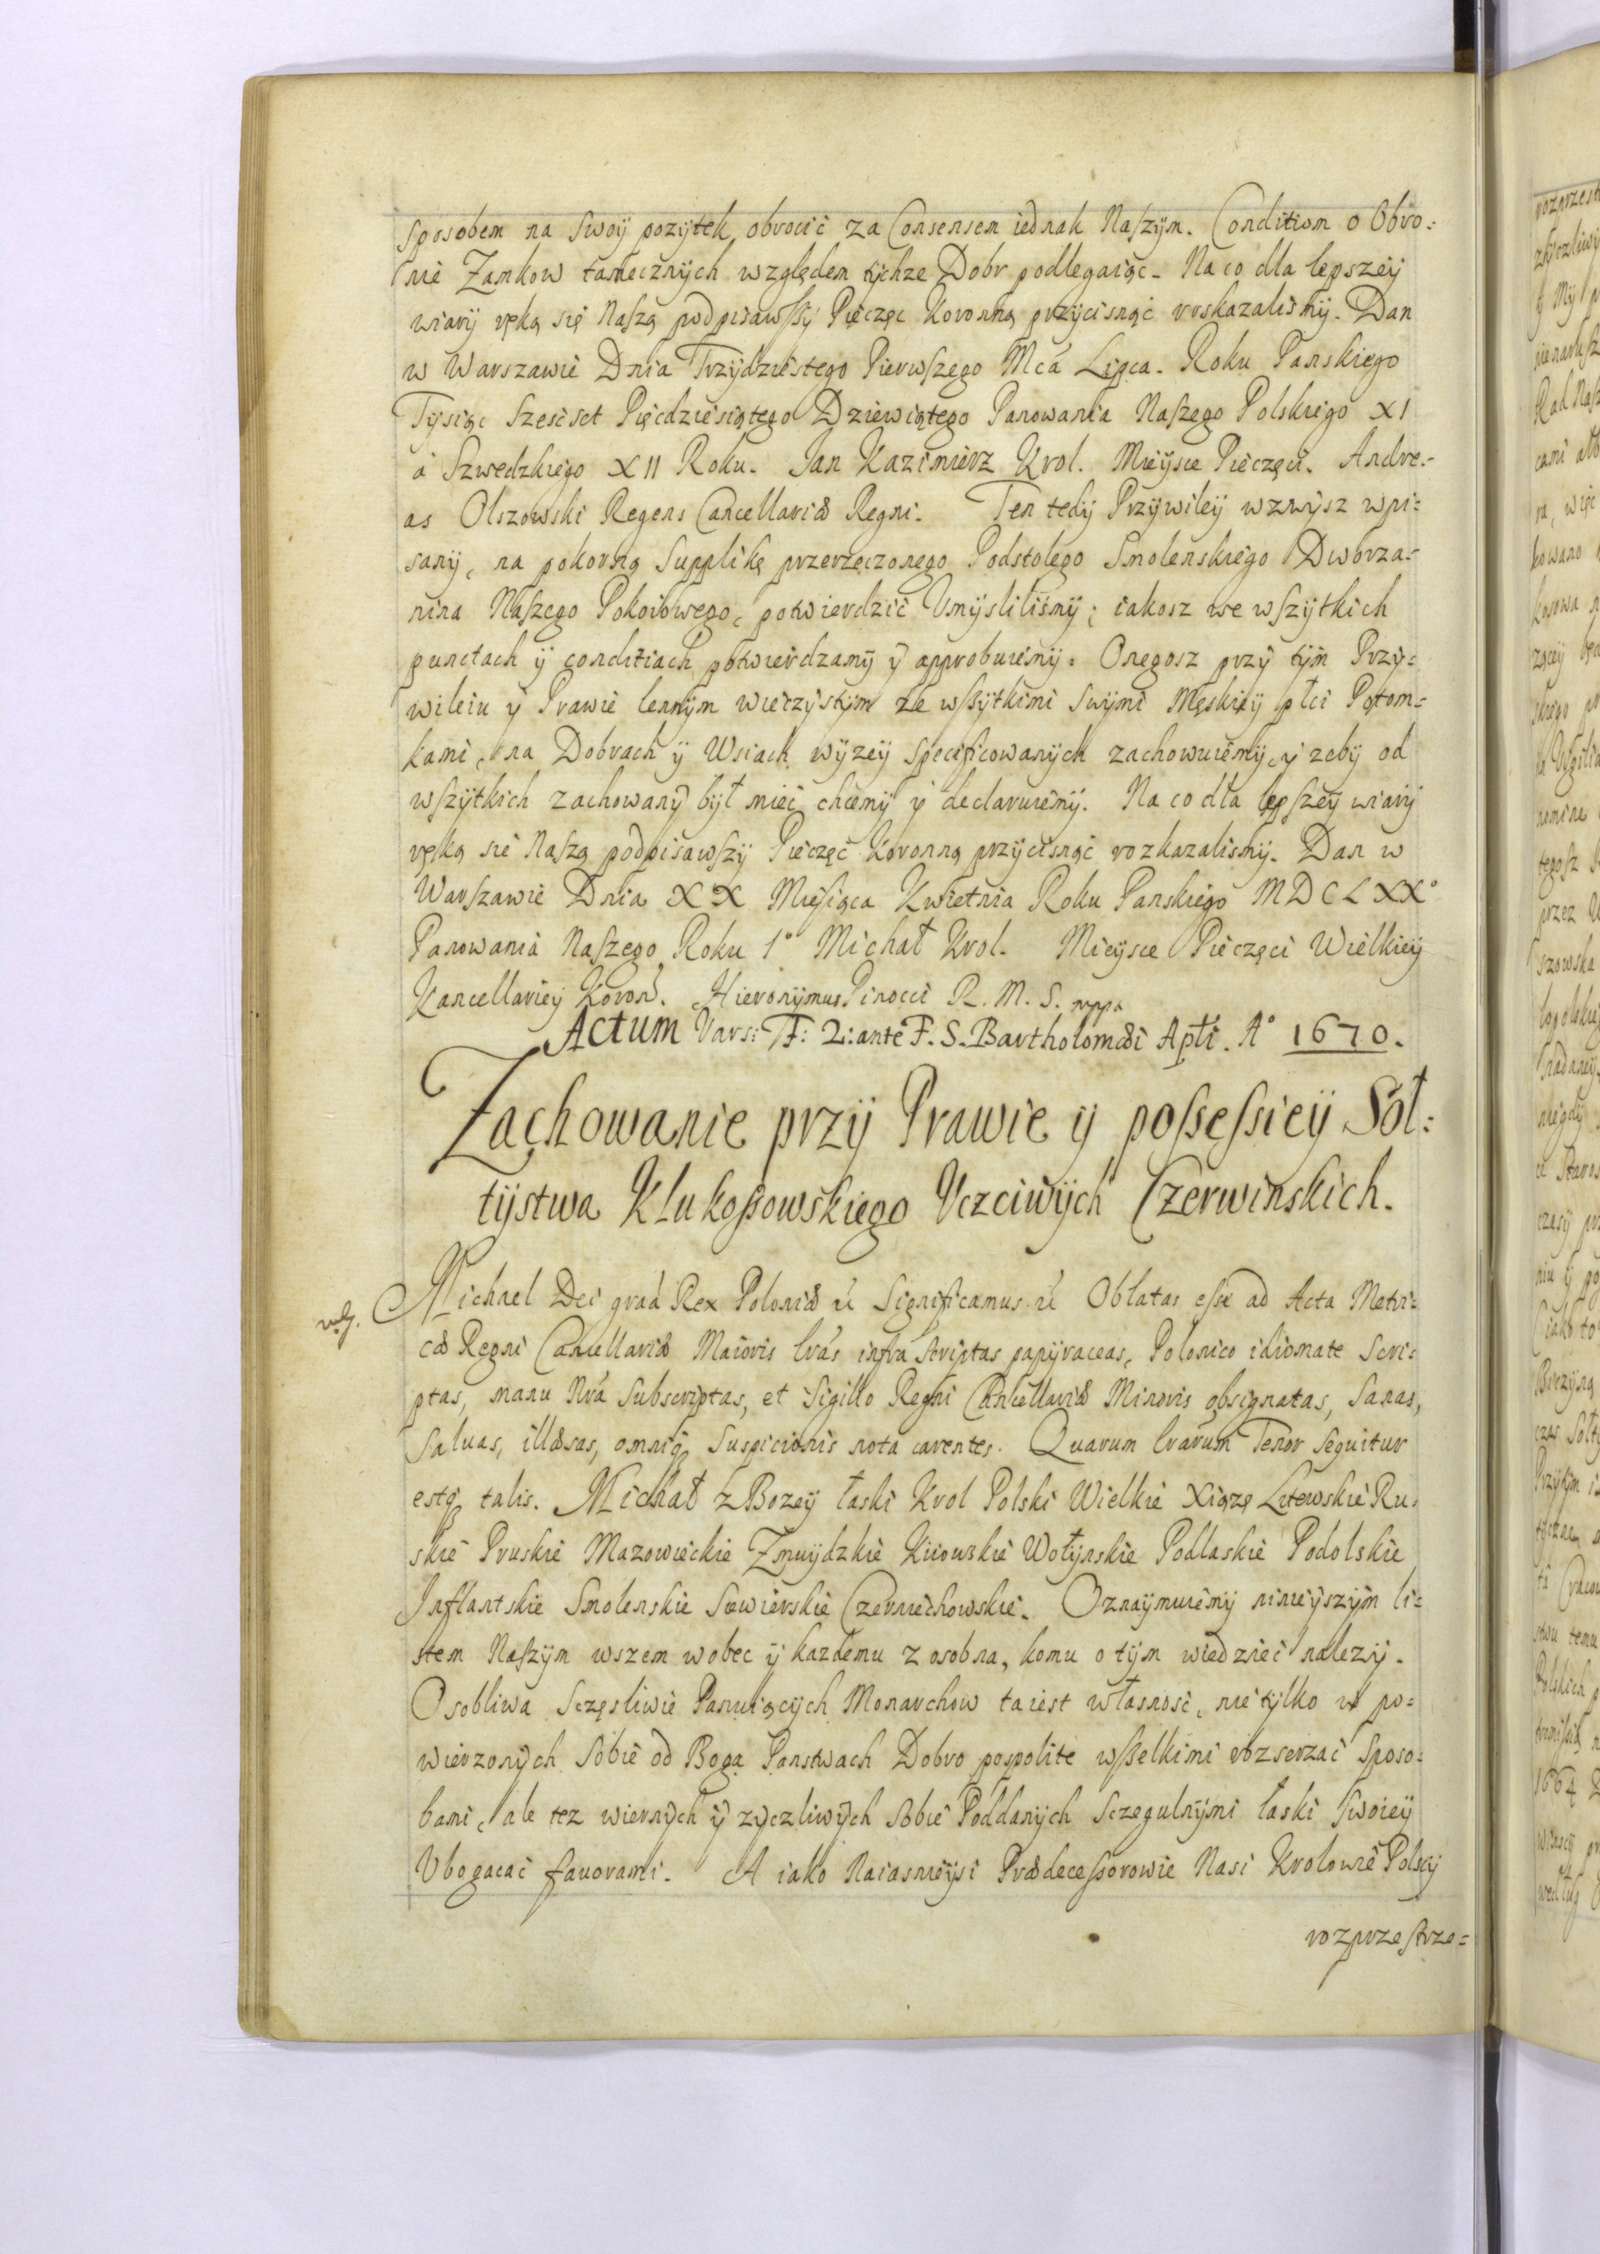 sposobem na swoÿ pozÿtek obrocic za Consensem iednak Naszÿm. Condition o Obro=
nie Zamkow tamecznÿch względem tÿchze Dobr podlegaiąc. Na co dla lepszeÿ
wiarÿ ręką się Naszą podpisawszÿ Pieczęc Koronną przÿcisnąc rozkazalismÿ. Dan
w Warszawie Dnia Trzÿdziestego Pierwszego Mcá Lipca. Roku Panskiego
Tÿsiąc Szescset Pięcdziesiątego Dziewiątego Panowania Naszego Polskiego XI
á Szwedzkiego XII Roku. Jan Kazimierz Krol. Mieÿsce Pieczęci. Andre=
as Olszowski Regens Cancellariæ Regni. Ten tedÿ Przÿwileÿ wzwÿsz wpi=
sanÿ, na pokorną Supplikę przerzęczonego Podstolego Smolenskiego Dworza=
nina Naszego Pokoiowego, potwierdzic Vmÿslilismÿ; iakosz we wszÿtkich
punctach ÿ conditiach potwierdzamÿ ÿ approbuiemÿ. Onegosz przÿ tÿm Przÿ=
wileiu ÿ Prawie lennÿm wieczÿstÿm ze wszÿtkimi swÿmi Męskieÿ płci Potom=
kami, na Dobrach ÿ Wsiach wÿzeÿ specificowanÿch zachowuiemÿ, ÿ zebÿ od
wszÿtkich zachowanÿ bÿł miec chcemÿ ÿ declaruiemÿ. Na co dla lepszeÿ wiarÿ
ręką sie Naszą podpisawszÿ Pieczęc Koronną przÿcisnąc rozkazalismÿ. Dan w
Warszawie Dnia XX Miesiąca Kwietnia Roku Panskiego MDCLXX°
Panowania Naszego Roku 1° Michał Krol. Mieÿsce Pieczęci Wielkieÿ
Kancellarieÿ Koron. Hieronÿmus Pinocci R. M. S. mppa
Actum Vars: F: 2: ante F. S. Bartholomæi Apłi. A° 1670.
Zachowanie przÿ Prawie ÿ possessieÿ Soł=
tÿstwa Klukossowskiego Vczciwÿch Czerwinskich.
Michael Dei graá Rex Poloniæ ĉ Significamus ĉ Oblatas esse ad Acta Metri=
cæ Regni Cancellariæ Maioris lrás infrá scriptas papÿraceas, Polonico idiomate Scri=
ptas, manu Nrá subscriptas, et sigillo Regni Cancellariæ Minoris obsignatas, sanas,
saluas, illæsas, omniq suspicionis nota carentes. Quarum lrarum Tenor sequitur
estq talis. Michał z Bozeÿ łaski Krol Polski Wielkie Xiązę Litewskie Ru=
skie Pruskie Mazowieckie Zmuÿdzkie Kiiowskie Wołÿnskie Podlaskie Podolskie
Inflantskie Smolenskie Siewierskie Czerniechowskie. Oznaÿmuiemÿ ninieÿszÿm li=
stem Naszÿm wszem wobec ÿ kazdemu z osobna, komu o tÿm wiedziec nalezÿ.
Osobliwa Sczęsliwie Panuiącÿch Monarchow ta iest własnosc, nie tÿlko w po=
wierzonÿch sobie od Boga Panstwach Dobro pospolite wsselkimi rozserzac sposo=
bami, ale tez wiernÿch ÿ zÿczliwÿch sobie Poddanÿch sczegulnÿmi łaski swoieÿ
Vbogacac fauorami. A iako Naiasnieÿsi Prædecessorowie Nasi Krolowie Polscÿ
rozprzestrze=